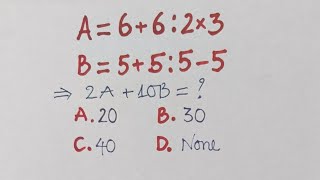 A = 6+6:2×3
B = 5+5:5-5
⇒ 2A + 10B = ?
A. 20 B. 30
C. 40 D. None